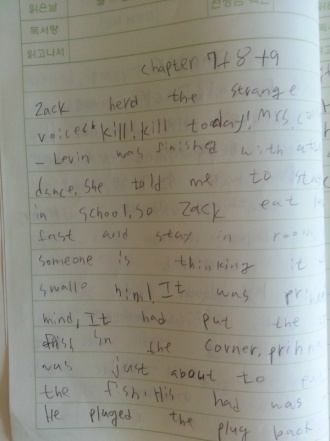 읽은날
독서량
읽고나서
chapter 7+8+9
Zack herd the strange
voices "kill! kill today! Mrs.
- Levin was finished with
dance, she told me to
in school, so Zack eat
fast and stay in room
someone is thinking it
swallo him! It was
mind, It had put the
fish in the corner,
was just about to
the fish. His had was
He pluged the plug back